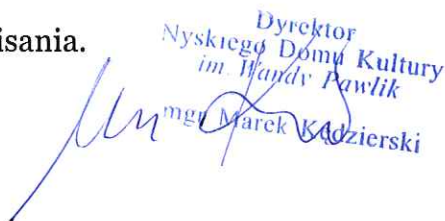 isania.
Dyrektor
Nyskiego Domu Kultury
im. Wandy Pawlik
mgr Marek Kędzierski